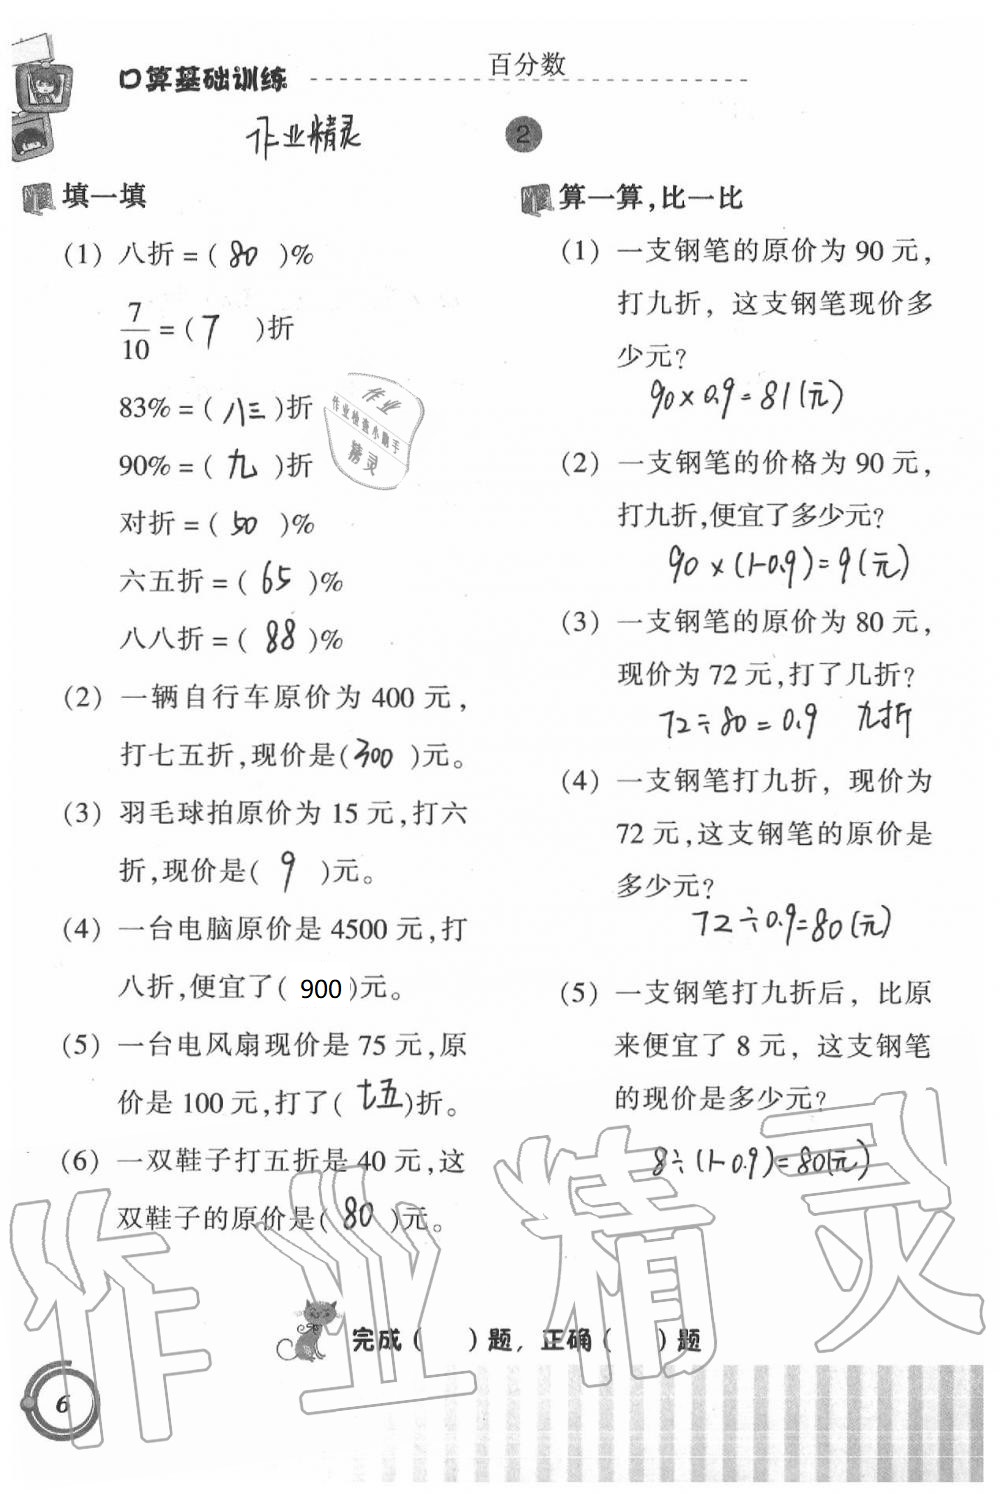 口算基础训练
百分数
作业精灵
2
填一填
(1) 八折=( 80 )%
7/10=( 7 )折
83%=( 八三 )折
90%=( 九 )折
对折=( 50 )%
六五折=( 65 )%
八八折=( 88 )%
(2) 一辆自行车原价为 400 元,
打七五折,现价是( 300 )元。
(3) 羽毛球拍原价为 15 元,打六
折,现价是( 9 )元。
(4) 一台电脑原价是 4500 元,打
八折,便宜了( 900 )元。
(5) 一台电风扇现价是 75 元,原
价是 100 元,打了( 七五 )折。
(6) 一双鞋子打五折是 40 元,这
双鞋子的原价是( 80 )元。
作业
作业检查小助手
精灵
算一算,比一比
(1) 一支钢笔的原价为 90 元,
打九折, 这支钢笔现价多
少元?
90×0.9=81(元)
(2) 一支钢笔的价格为 90 元,
打九折,便宜了多少元?
90×(1-0.9)=9(元)
(3) 一支钢笔的原价为 80 元,
现价为 72 元,打了几折?
72÷80=0.9 九折
(4) 一支钢笔打九折, 现价为
72 元,这支钢笔的原价是
多少元?
72÷0.9=80(元)
(5) 一支钢笔打九折后, 比原
来便宜了 8 元, 这支钢笔
的现价是多少元?
8÷(1-0.9)=80(元)
作业精灵
完成( )题, 正确( )题
6